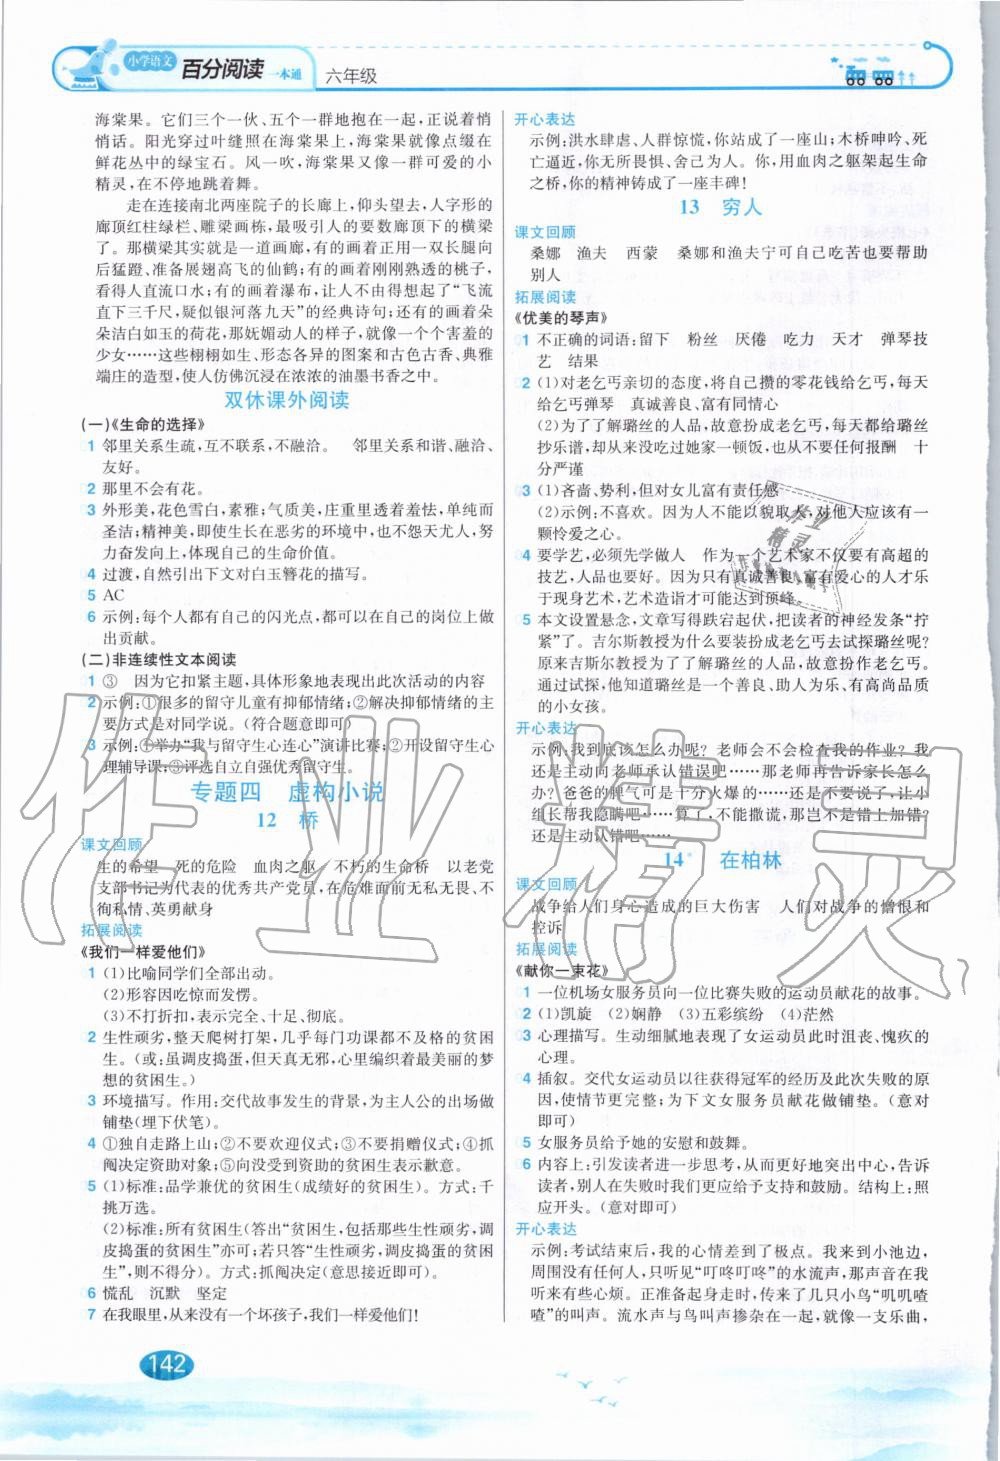 小学语文 百分阅读 一本通 六年级
海棠果。它们三个一伙、五个一群地抱在一起,正说着悄
悄话。阳光穿过叶缝照在海棠果上,海棠果就像点缀在
鲜花丛中的绿宝石。风一吹,海棠果像一个个可爱的小
精灵,在不停地跳着舞。
走在连接南北两座院子的长廊上,仰头望去,人字形的
廊顶红柱绿栏、雕梁画栋,最吸引人的要数廊顶下的横梁
了。那横梁其实就是一道画廊,有的画着用一双长腿向
后猛蹬、准备展翅高飞的仙鹤;有的画着刚刚熟透的桃子,
看得人直流口水;有的画着瀑布,让人不由得想起了“飞流
直下三千尺,疑似银河落九天”的经典诗句;还有的画着朵
朵洁白如玉的荷花,那妩媚动人的样子,就像一个个害羞的
少女……这些栩栩如生、形态各异的图案和古色古香、典雅
端庄的造型,使人仿佛沉浸在浓浓的油墨书香之中。
双休课外阅读
(一)《生命的选择》
1 邻里关系生疏,互不联系,不融洽。 邻里关系和谐、融洽、
友好。
2 那里不会有花。
3 外形美,花色雪白,素雅;气质美,庄重里透着羞怯,单纯而
圣洁;精神美,即使生长在恶劣的环境中,也不向命运屈服,
努力奋发向上,体现自己的生命价值。
4 过渡,自然引出下文对白玉簪花的描写。
5 AC
6 示例:每个人都有自己的闪光点,都可以在自己的岗位上做
出贡献。
(二)非连续性文本阅读
1 ③ 因为它扣紧主题,具体形象地表现出此次活动的内容
2 示例:①很多的留守儿童有抑郁情绪;②解决抑郁情绪的主
要方式是对同学说。(符合题意即可)
3 示例:①举办“我与留守生心连心”演讲比赛;②开设留守生心
理辅导课;③评选自立自强优秀留守生。
专题四 虚构小说
12 桥
课文回顾
生的希望 死的危险 血肉之躯 不朽的生命桥 以老党
支部书记为代表的优秀共产党员,在危难面前无私无畏、不
徇私情、英勇献身
拓展阅读
《我们一样爱他们》
1 (1)比喻同学们全部出动。
(2)形容因吃惊而发愣。
(3)不打折扣,表示完全、十足、彻底。
2 生性顽劣,整天爬树打架,几乎每门功课都不及格的贫困
生。(或:虽调皮捣蛋,但天真无邪,心里编织着最美丽的梦
想的贫困生。)
3 环境描写。作用:交代故事发生的背景,为主人公的出场做
铺垫(埋下伏笔)。
4 ①独自走路上山;②不要欢迎仪式;③不要捐赠仪式;④抓
阄决定资助对象;⑤向没受到资助的贫困生表示歉意。
5 (1)标准:品学兼优的贫困生(成绩好的贫困生)。方式:千
挑万选。
(2)标准:所有贫困生(答出“贫困生,包括那些生性顽劣,调
皮捣蛋的贫困生”亦可;若只答“生性顽劣,调皮捣蛋的贫困
生”,则不得分)。方式:抓阄决定(意思接近即可)。
6 慌乱 沉默 坚定
7 在我眼里,从来没有一个坏孩子,我们一样爱他们!
开心表达
示例:洪水肆虐、人群惊慌,你站成了一座山;木桥呻吟、死
亡逼近,你无所畏惧、舍己为公。你,用血肉之躯架起生命
之桥,你的精神铸成了一座丰碑!
13 穷人
课文回顾
桑娜 渔夫 西蒙 桑娜和渔夫宁可自己吃苦也要帮助
别人
拓展阅读
《优美的琴声》
1 不正确的词语:留下 粉丝 厌倦 吃力 天才 弹琴技
艺 结果
2 (1)对老乞丐亲切的态度,将自己攒的零花钱给乞丐,每天
给乞丐弹琴 真诚善良、富有同情心
(2)为了了解璐丝的人品,故意扮成老乞丐,每天都给璐丝
抄乐谱,却从来没吃过她家一顿饭,也从不计任何报酬 十
分严谨
3 (1)吝啬、势利,但对女儿富有责任感
(2)示例:不喜欢。因为人不能以貌取人,对他人应该有一
颗怜爱之心。
4 要学艺,必须先学做人 作为一个艺术家不仅要有高超的
技艺,人品也要好。因为只有真诚善良、富有爱心的人才乐
于现身艺术,艺术造诣才可能达到顶峰。
5 本文设置悬念,文章写得跌宕起伏,把读者的神经发条“拧
紧”了。吉尔斯教授为什么要装扮成老乞丐去试探璐丝呢?
原来吉斯尔教授为了了解璐丝的人品,故意扮成老乞丐。
通过试探,他知道璐丝是善良的、助人为乐、有高尚品质的
小女孩。
开心表达
示例:我到底该怎么办呢?老师会不会检查我的作业?我
还是主动向老师承认错误吧……那老师再告诉家长怎么
办?爸爸的脾气可是十分火爆的……还是不要说了,让小组
长帮我隐瞒吧……算了,不能撒谎,那岂不是错上加错?
还是主动认错吧……
14* 在柏林
课文回顾
战争给人们身心造成的巨大伤害 人们对战争的憎恨和
控诉
拓展阅读
《献你一束花》
1 一位机场女服务员向一位比赛失败的运动员献花的故事。
2 (1)凯旋 (2)娴静 (3)五彩缤纷 (4)茫然
3 心理描写。生动细腻地表现了女运动员此时沮丧、愧疚的
心理。
4 插叙。交代女运动员以往获得冠军的经历及此次失败的原
因,使情节更完整;为下文女服务员献花做铺垫。(意对
即可)
5 女服务员给予她的安慰和鼓舞。
6 内容上:引发读者进一步思考,从而更好地突出中心,告诉
读者,别人在失败时我们更应给予支持和鼓励。结构上:照
应开头。(意对即可)
开心表达
示例:考试结束后,我的心情差到了极点。我来到小池边,
周围没有任何人,只听见“叮咚叮咚”的水流声,那声音在我
听来有些心烦。正准备起身走时,传来了几只小鸟“叽叽喳
喳”的叫声。流水声与鸟叫声掺杂在一起,就像一支乐曲,
142
作业精灵
作业精灵